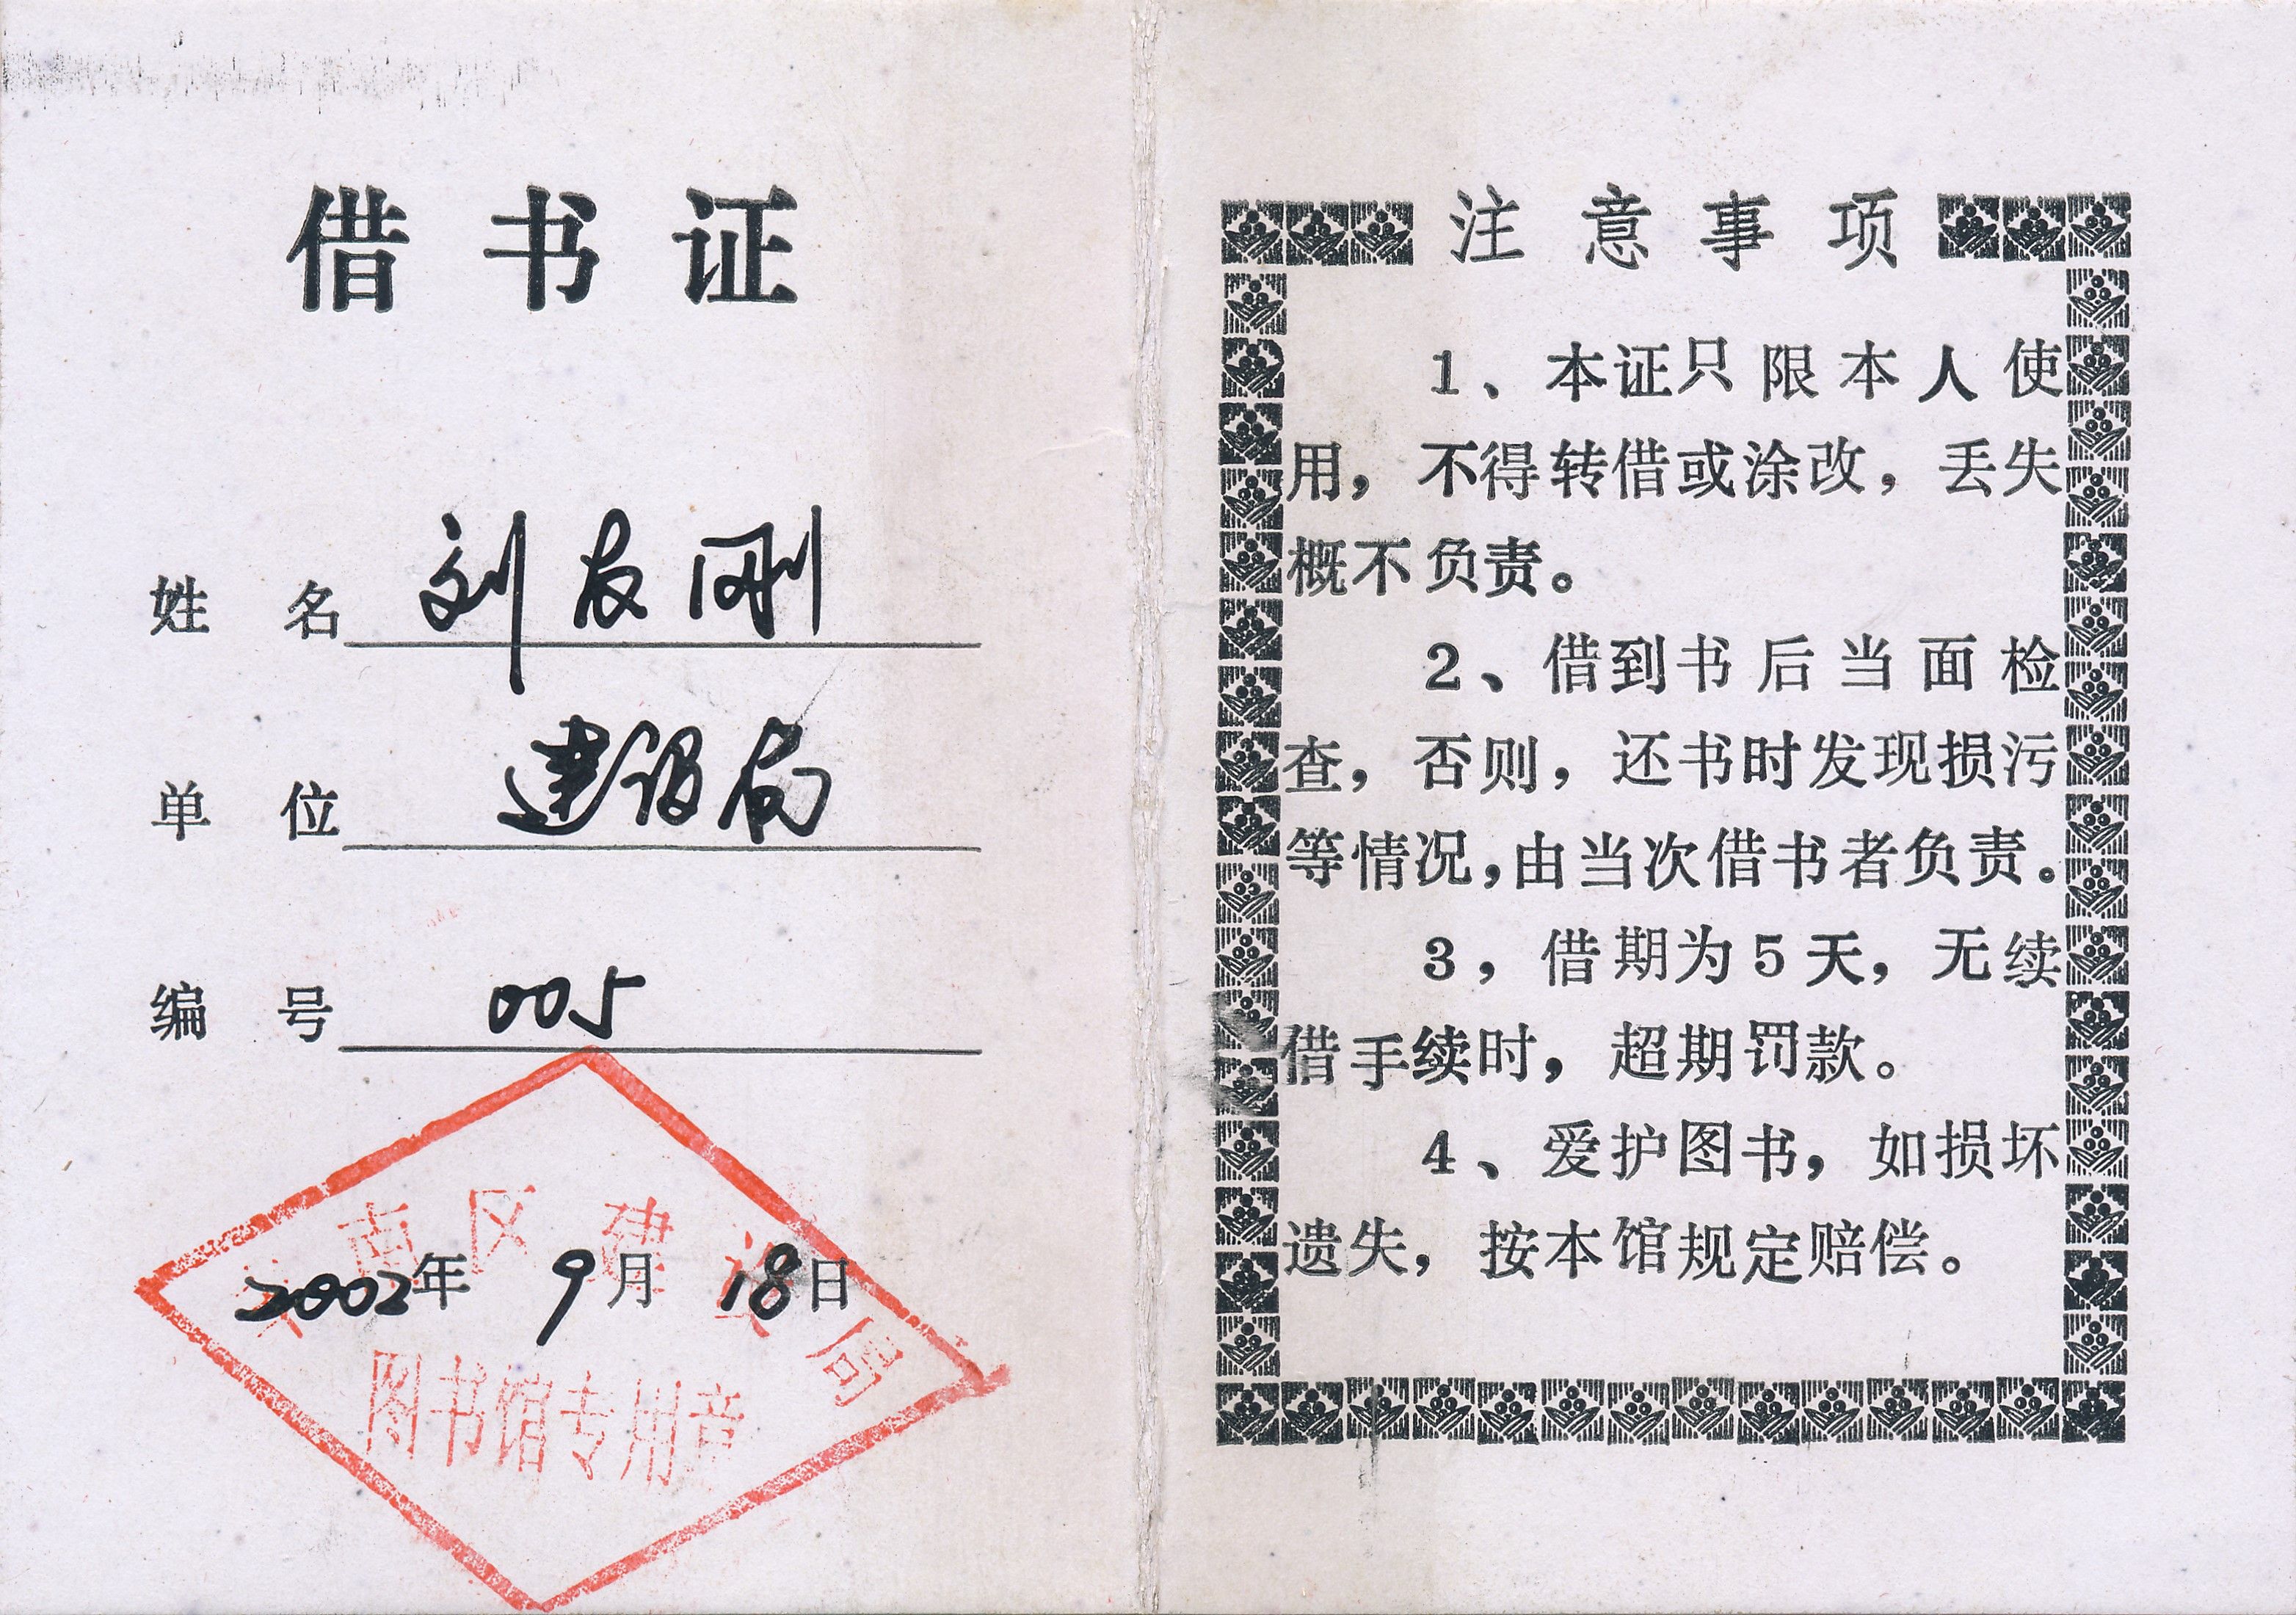 借书证
姓名 刘友刚
单位 建设局
编号 005
南区建设局
2002年 9月 18日
图书馆专用章
注意事项
1、本证只限本人使
用，不得转借或涂改，丢失
概不负责。
2、借到书后当面检
查，否则，还书时发现损污
等情况，由当次借书者负责。
3，借期为5天，无续
借手续时，超期罚款。
4、爱护图书，如损坏
遗失，按本馆规定赔偿。